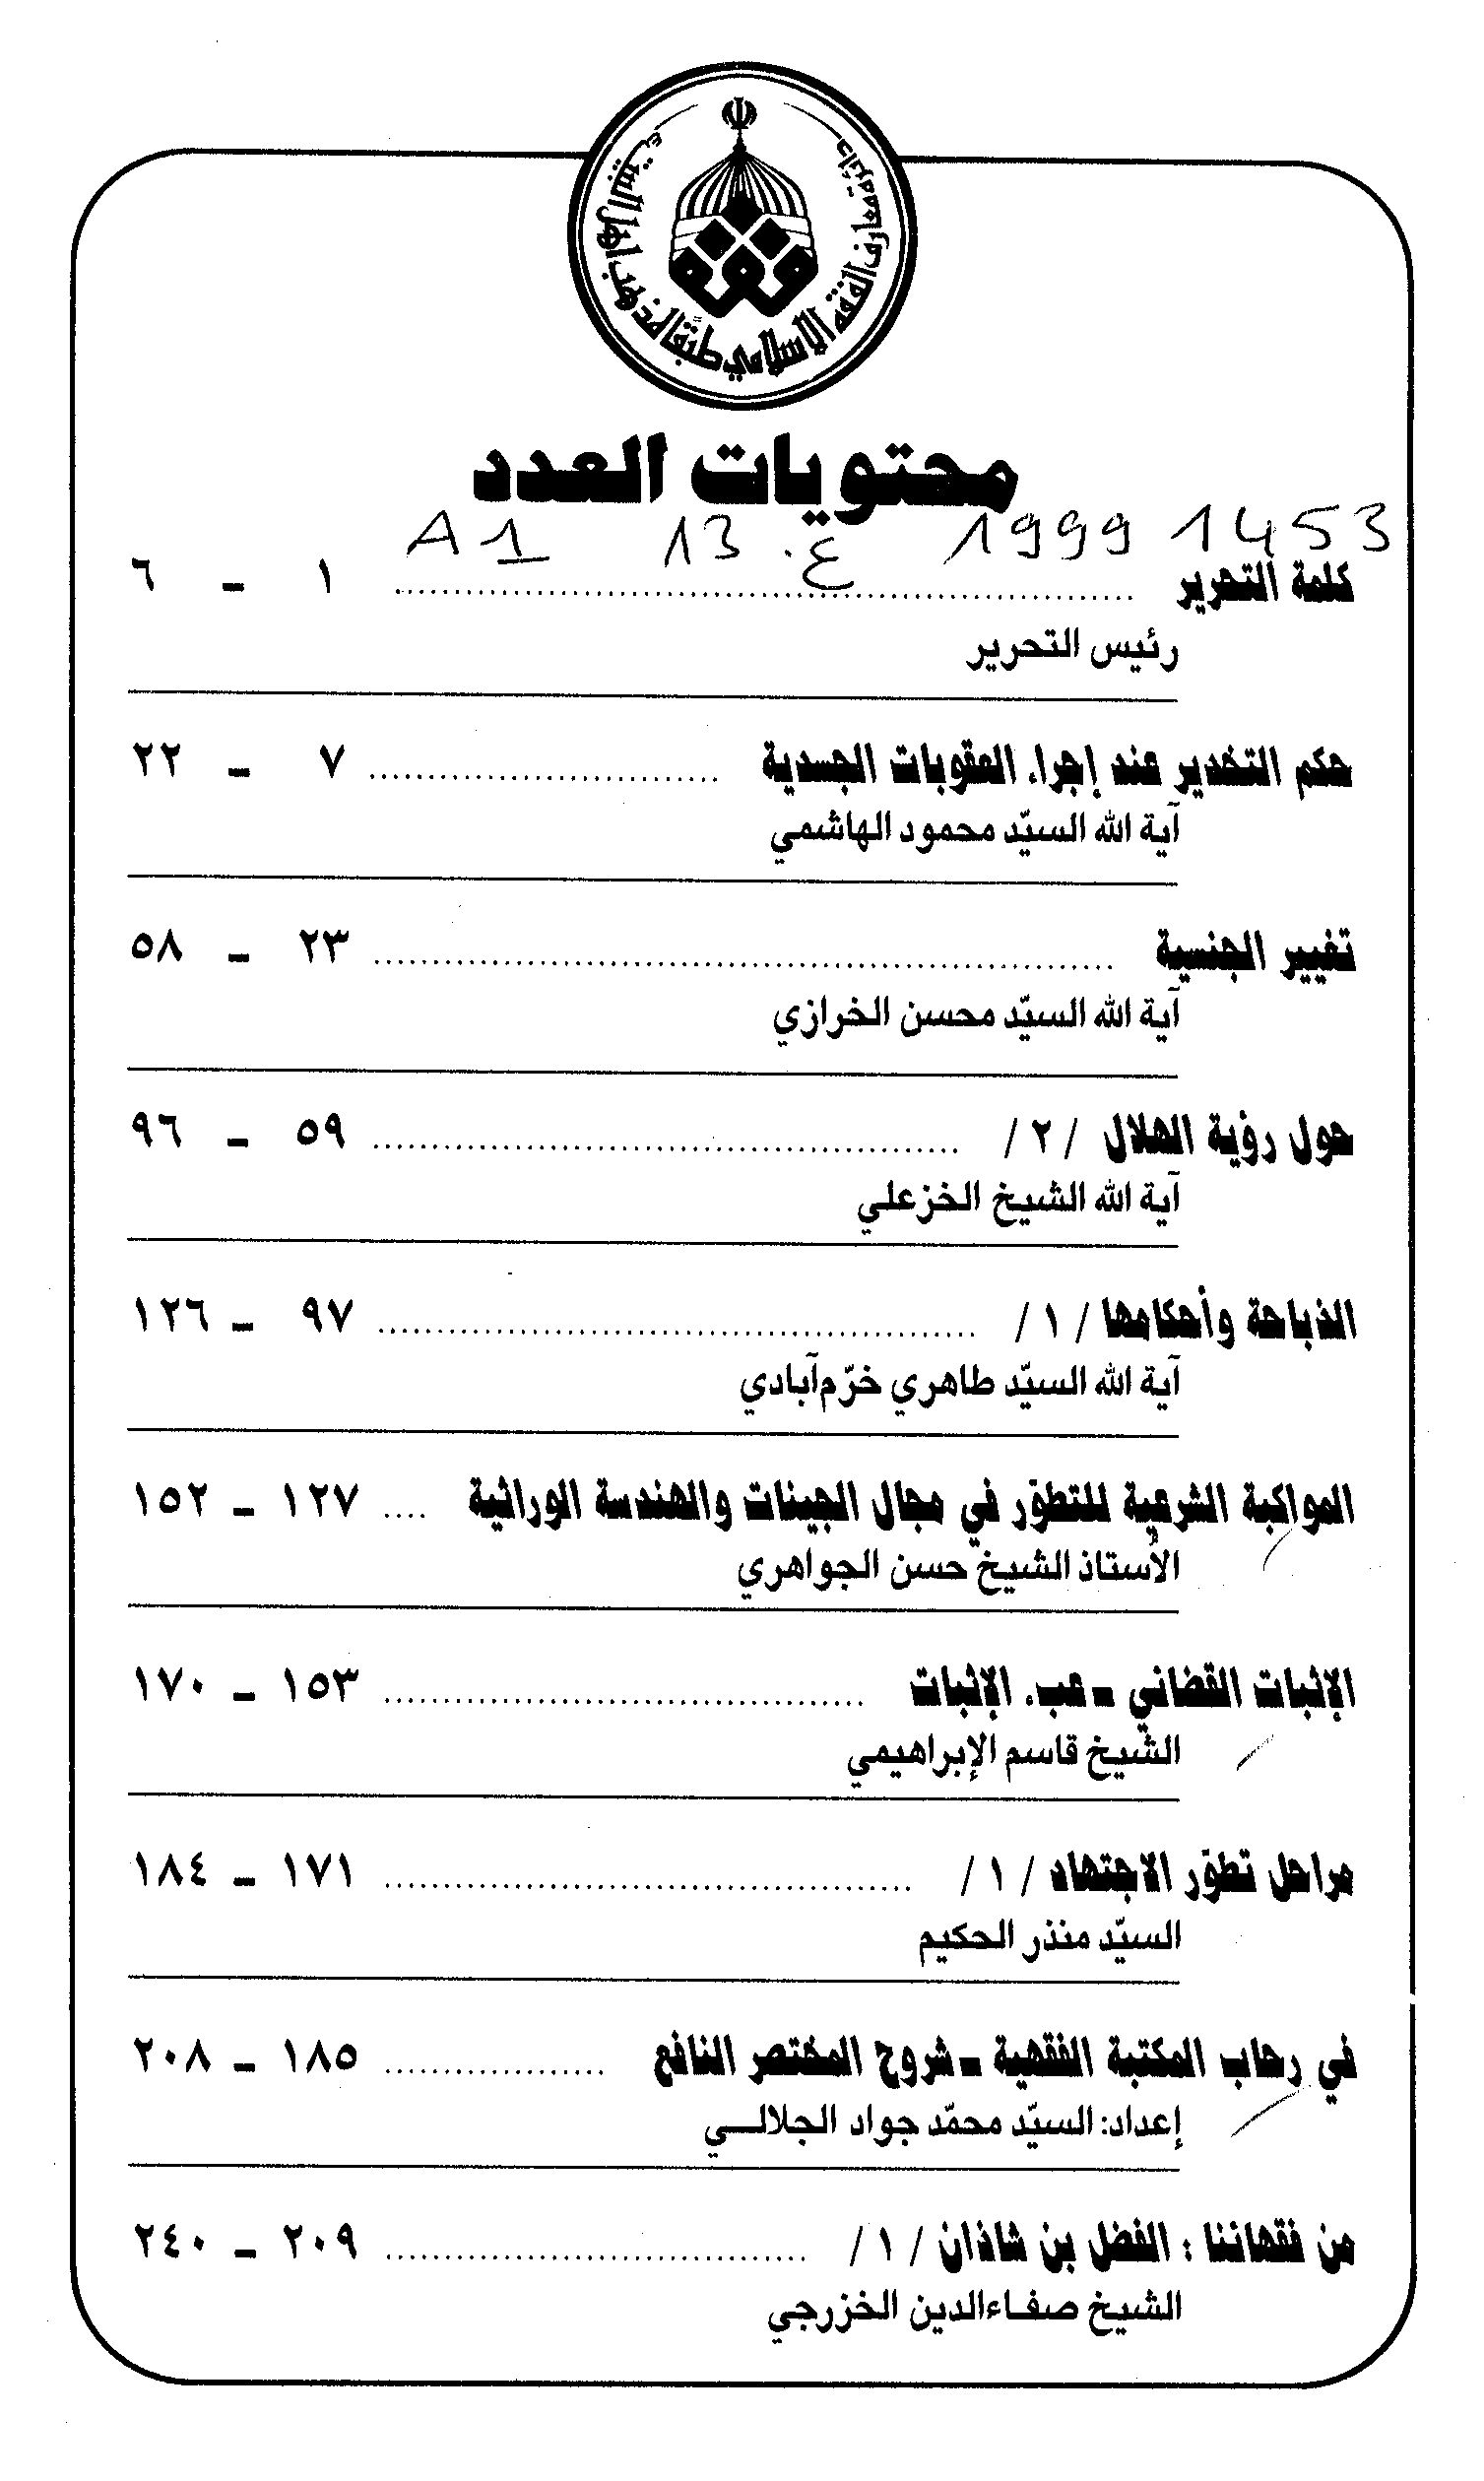 دائرة معارف الفقه الإسلامي طبقاً لمذهب أهل البيت ع
محتويات العدد
A1 13 .ع 1999 1453
كلمة التحرير .......... ١ ـ ٦
رئيس التحرير
حكم التخدير عند إجراء العقوبات الجسدية .......... ٧ ـ ٢٢
آية الله السيّد محمود الهاشمي
تغيير الجنسية .......... ٢٣ ـ ٥٨
آية الله السيّد محسن الخرازي
حول رؤية الهلال / ٢ / .......... ٥٩ ـ ٩٦
آية الله الشيخ الخزعلي
الذباحة وأحكامها / ١ / .......... ٩٧ ـ ١٢٦
آية الله السيّد طاهري خرّم‌آبادي
المواكبة الشرعية للتطوّر في مجال الجينات والهندسة الوراثية .... ١٢٧ ـ ١٥٢
الاُستاذ الشيخ حسن الجواهري
الإثبات القضائي ـ عبء الإثبات .......... ١٥٣ ـ ١٧٠
الشيخ قاسم الإبراهيمي
مراحل تطوّر الاجتهاد / ١ / .......... ١٧١ ـ ١٨٤
السيّد منذر الحكيم
في رحاب المكتبة الفقهية ـ شروح المختصر النافع .......... ١٨٥ ـ ٢٠٨
إعداد: السيّد محمّد جواد الجلالـــي
من فقهائنا : الفضل بن شاذان / ١ / .......... ٢٠٩ ـ ٢٤٠
الشيخ صفـاءالدين الخزرجي